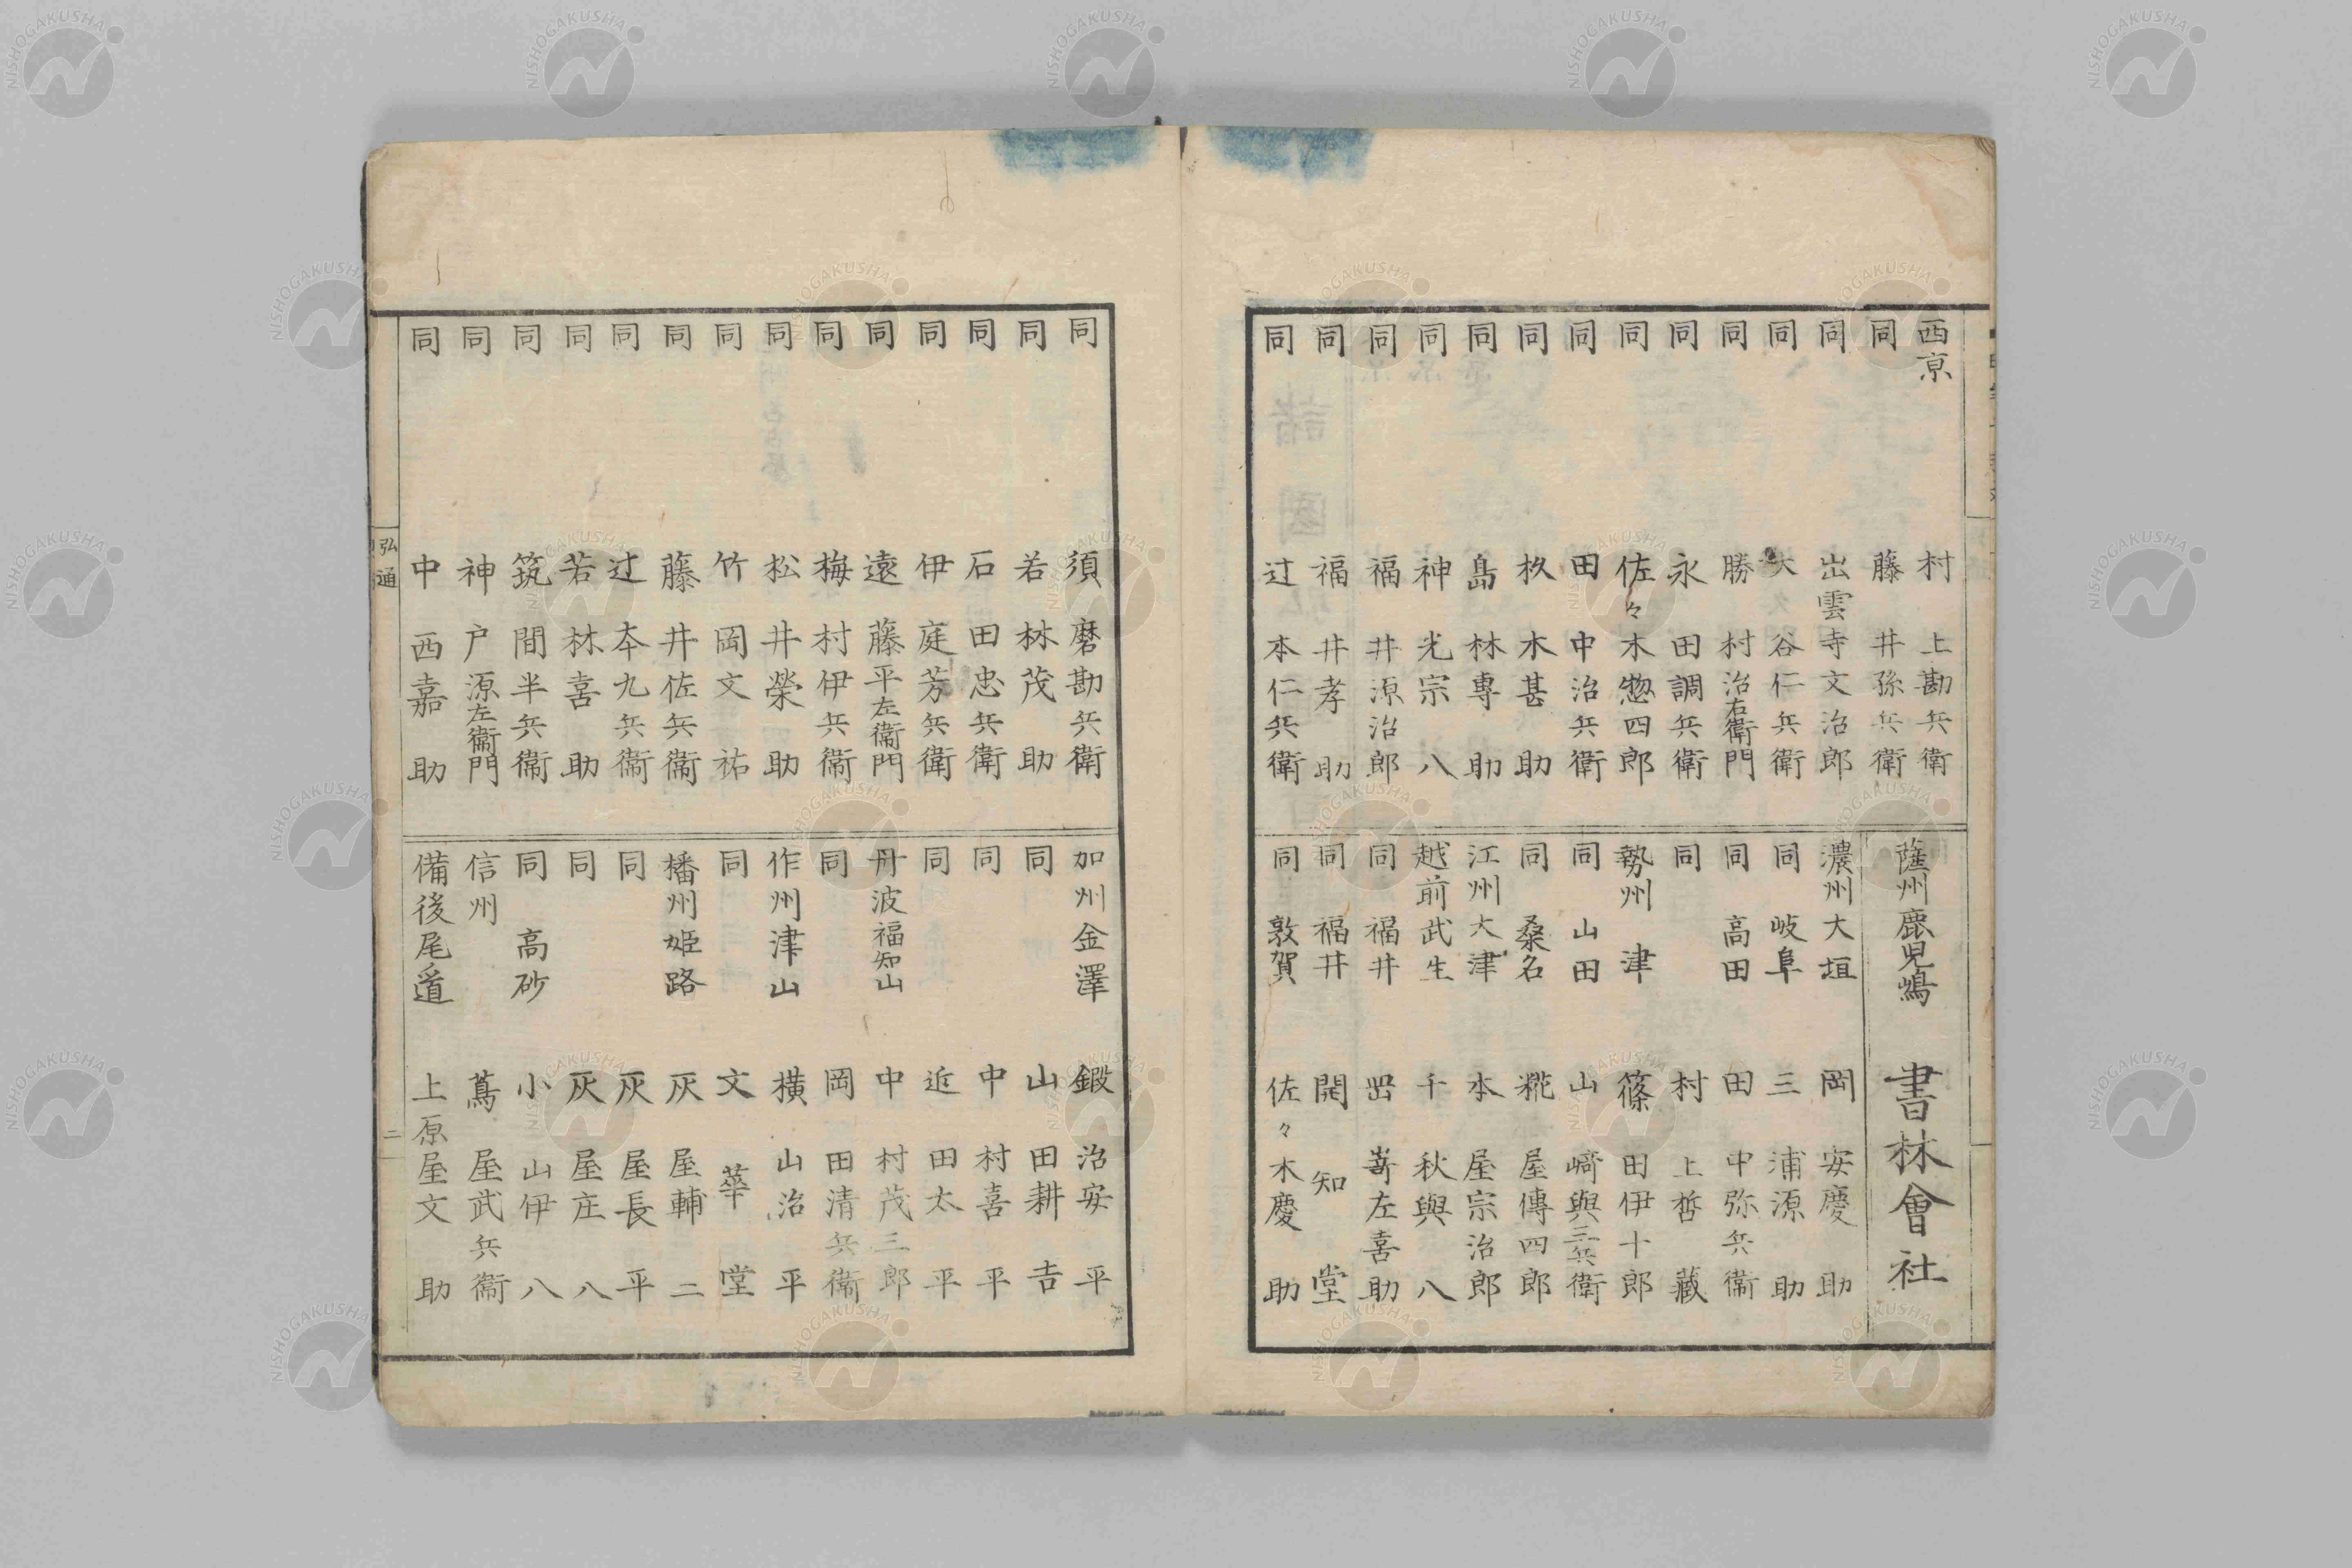 西京 村上勘兵衛
同 藤井孫兵衛
同 出雲寺文治郎
同 大谷仁兵衛
同 勝村治右衛門
同 永田調兵衛
同 佐々木惣四郎
同 田中治兵衛
同 杦木甚助
同 島林專助
同 神光宗八
同 福井源治郎
同 福井孝助
同 辻本仁兵衛
薩州鹿児嶋 書林會社
濃州大垣 岡安慶助
同 岐阜 三浦源助
同 高田 田中弥兵衞
同 村上哲藏
勢州 津 篠田伊十郎
同 山田 山﨑與三兵衛
同 桑名 糀屋傳四郎
江州大津 本屋宗治郎
越前武生 千秋與八
同 福井 岡嵜左喜助
同 福井 開知堂
同 敦賀 佐々木慶助
同 須磨勘兵衛
同 若林茂助
同 石田忠兵衛
同 伊庭芳兵衛
同 遠藤平左衞門
同 梅村伊兵衞
同 松井榮助
同 竹岡文祐
同 藤井佐兵衞
同 辻本九兵衞
同 若林喜助
同 筑間半兵衞
同 神戸源左衞門
同 中西嘉助
加州金澤 鍜治安平
同 山田耕吉
同 中村喜平
同 近田太平
丹波福知山 中村茂三郎
同 岡田清兵衞
作州津山 橫山治平
同 文華堂
播州姫路 灰屋輔二
同 灰屋長平
同 灰屋庄八
同 高砂 小山伊八
信州 蔦屋武兵衞
備後尾道 上原屋文助
弘通
二
NISHOGAKUSHA